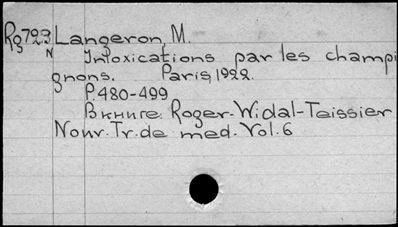 Rg723 Langeron, M.
N Intoxications par les champi
gnons. Paris, 1922.
P. 480-499
В книге: Roger-Widal-Teissier
Nouv. Tr. de med. Vol. 6